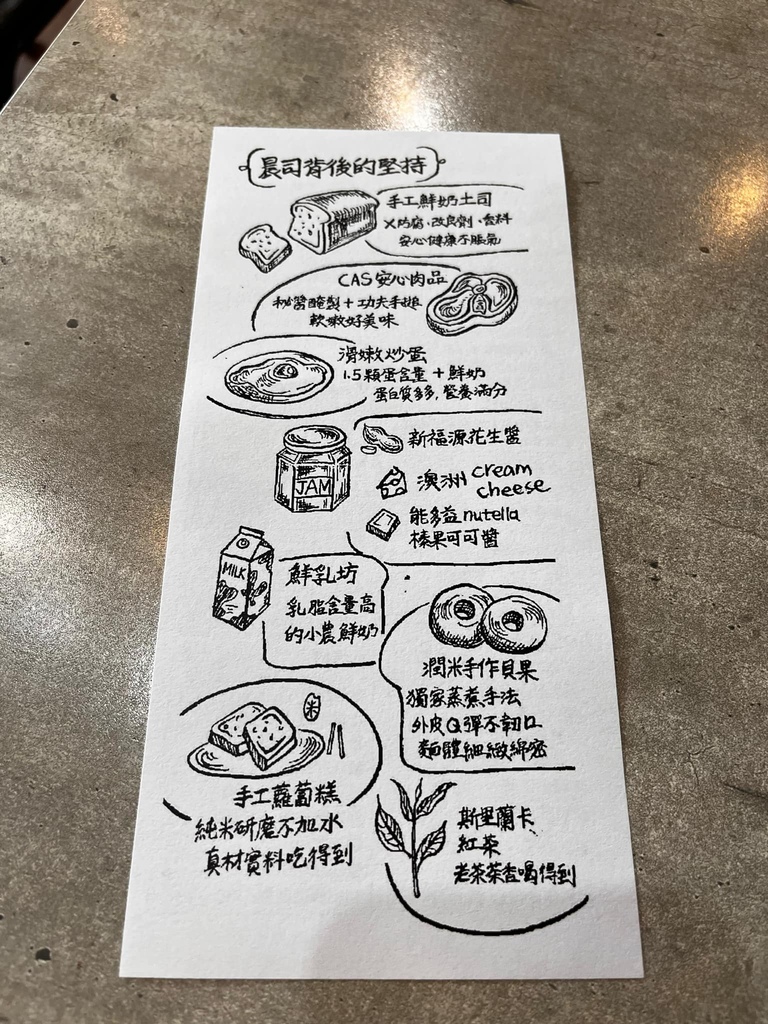 晨司背後的堅持
手工鮮奶土司
X防腐、改良劑、香料
安心健康不脹氣
CAS安心肉品
秘醬醃製+功夫手搥
軟嫩好美味
滑嫩炒蛋
1.5顆蛋含量+鮮奶
蛋白質多多,營養滿分
JAM
新福源花生醬
澳洲 cream
cheese
能多益 nutella
榛果可可醬
MILK
鮮乳坊
乳脂含量高
的小農鮮奶
潤米手作貝果
獨家蒸煮手法
外皮Q彈不韌口
麵體細緻綿密
米
手工蘿蔔糕
純米研磨不加水
真材實料吃得到
斯里蘭卡
紅茶
老茶茶香喝得到